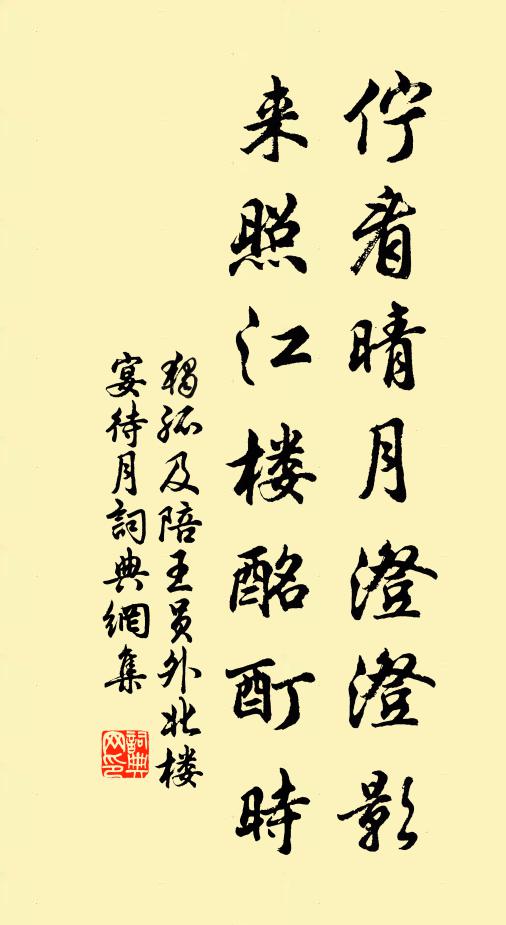 佇看晴月澄澄影
来照江楼酩酊时
独孤及陪王員外北楼
宴待月詞典網集
詞典
网印